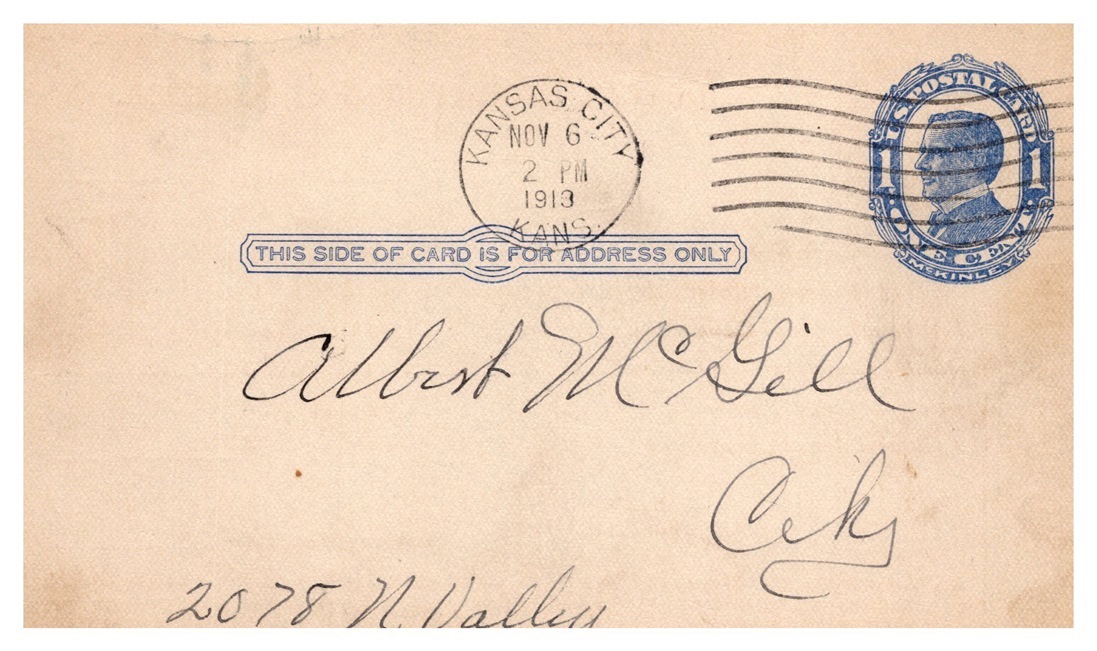 KANSAS CITY
NOV 6
2 PM
1913
KANS.
U.S. POSTAL CARD
1 1
ONE CENT
McKINLEY
THIS SIDE OF CARD IS FOR ADDRESS ONLY
Albert McGill
City
2078 N. Valley